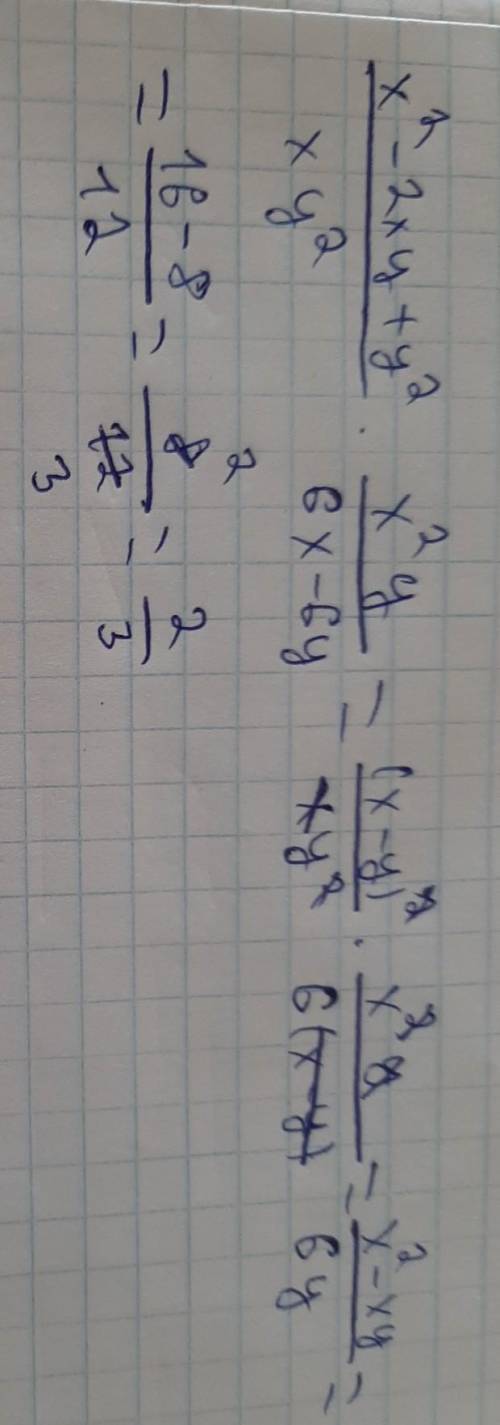 (x² - 2xy + y²)/(xy²) · (x²y)/(6x - 6y) = ((x - y)²)/(xy²) · (x²y)/(6(x - y)) = (x² - xy)/(6y) =
= (16 - 8)/12 = 8/12 = 2/3
2
3